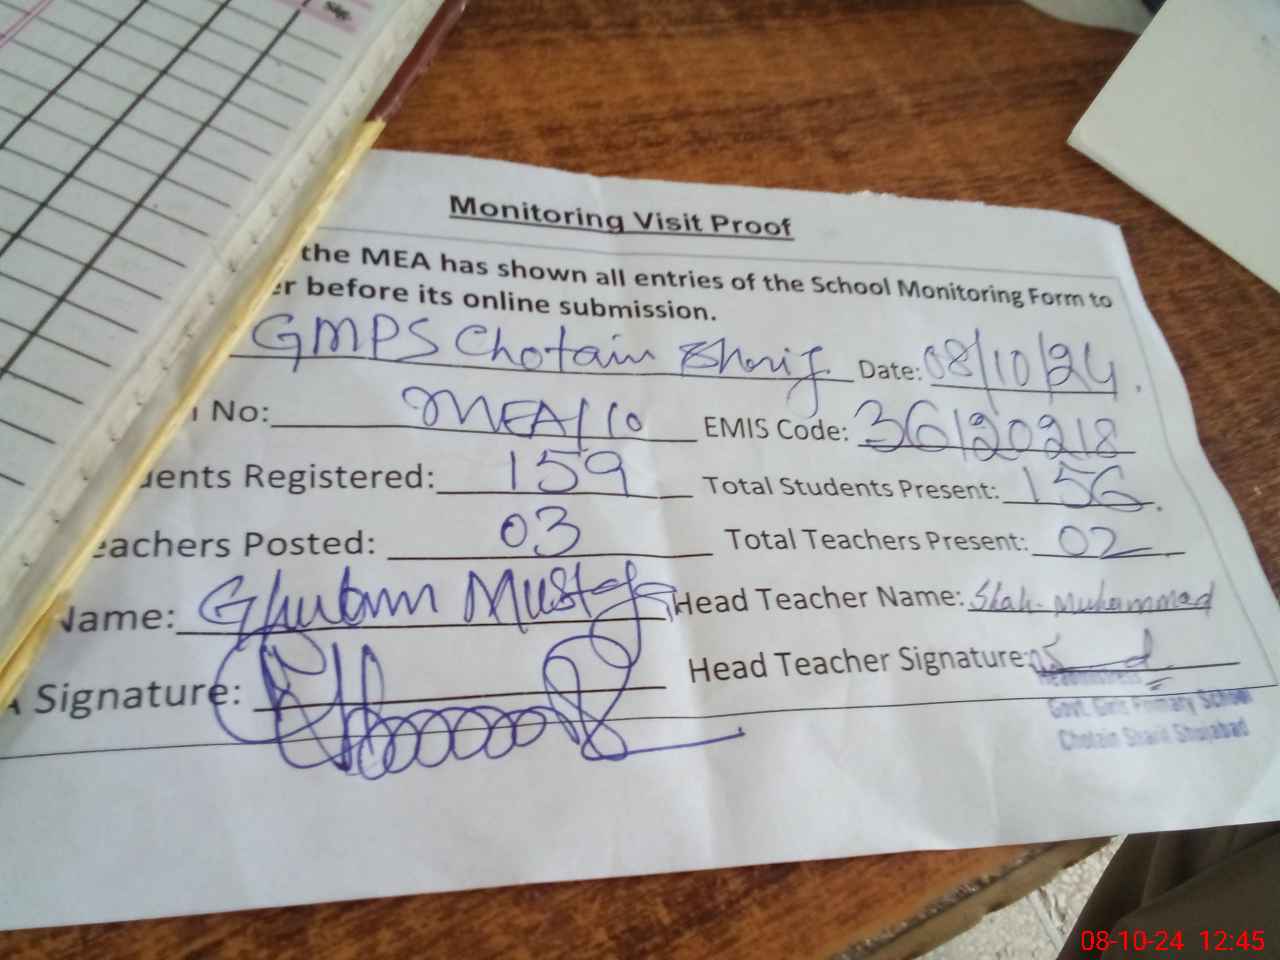 Monitoring Visit Proof
the MEA has shown all entries of the School Monitoring Form to
er before its online submission.
GMPS Chotain Sharif Date: 08/10/24
No: MEA/10 EMIS Code: 36120218
ents Registered: 159 Total Students Present: 156
eachers Posted: 03 Total Teachers Present: 02
Name: Ghulam Mustafa Head Teacher Name: Shah Muhammad
Signature: Head Teacher Signature:
Headmistress
Govt. Girls Primary School
Chotain Sharif Shujabad
08-10-24 12:45